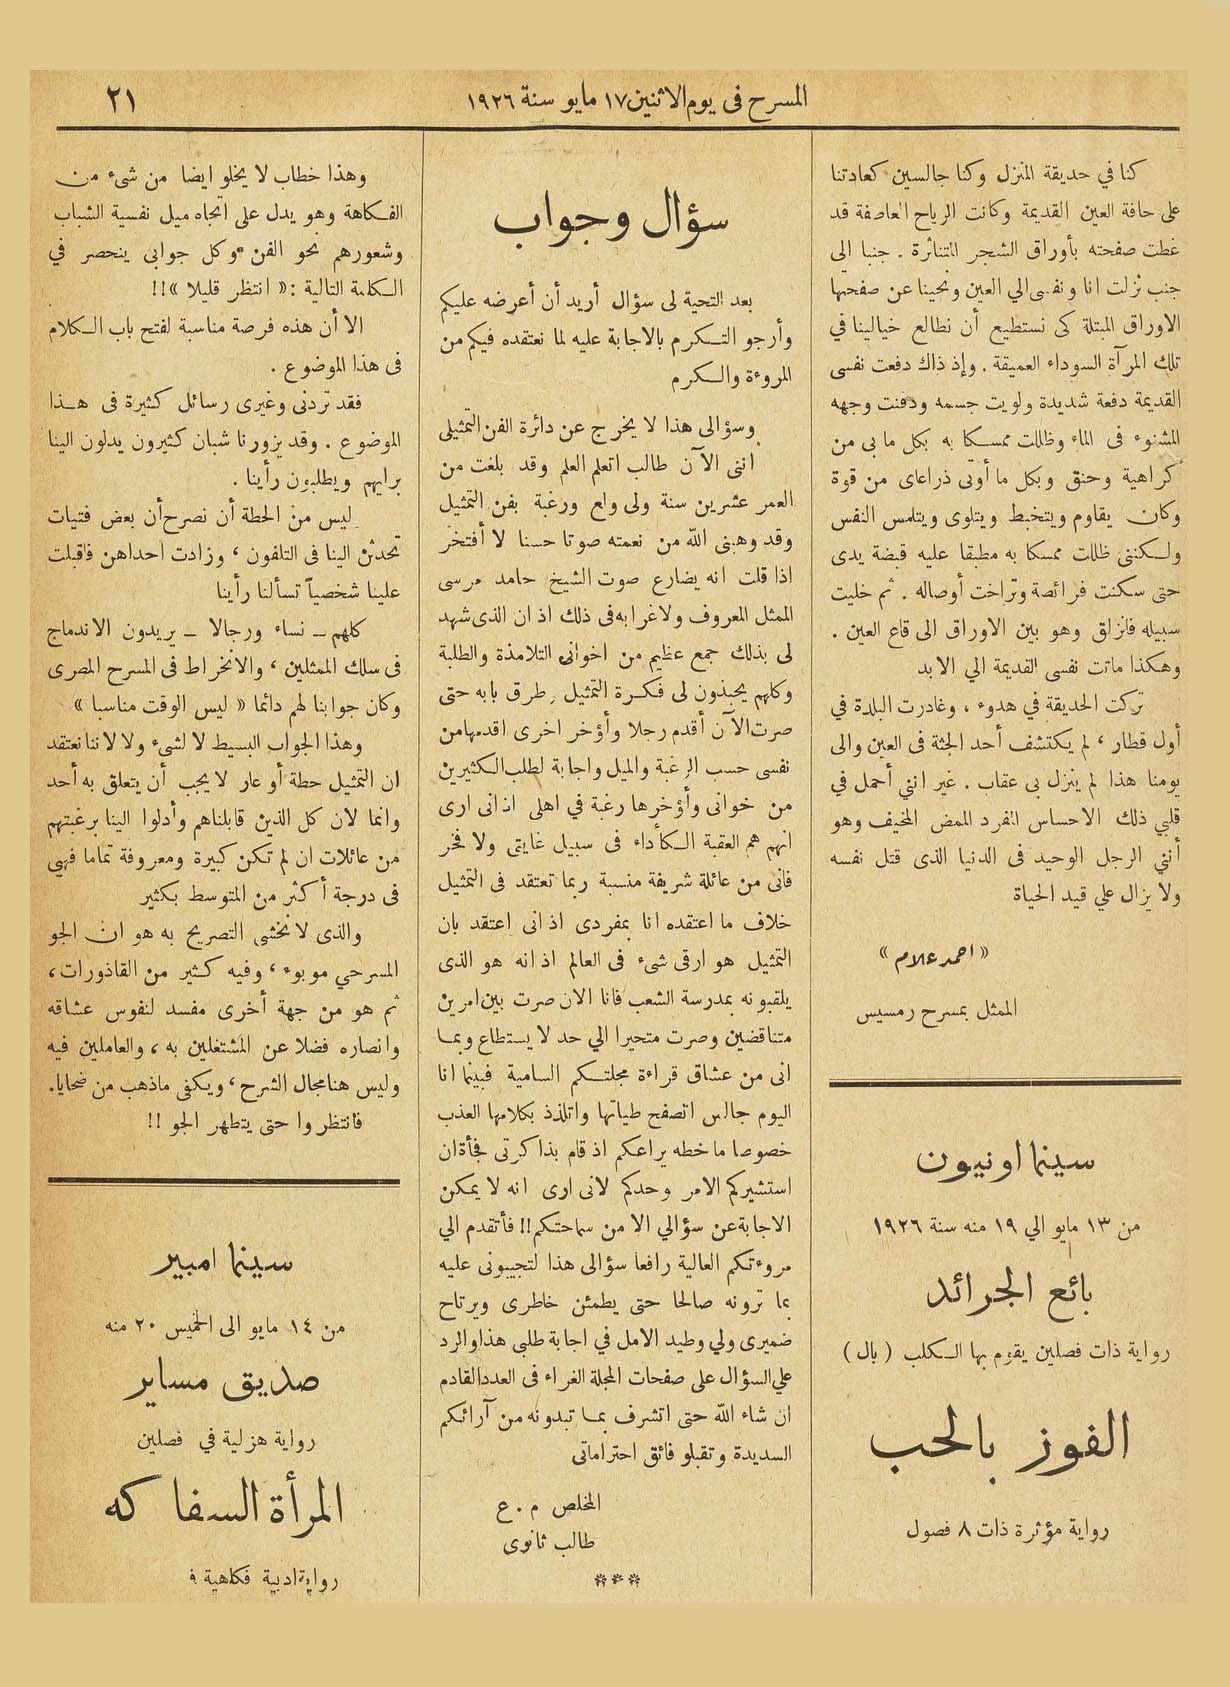 المسرح فى يوم الاثنين ١٧ مايو سنة ١٩٢٦
٢١
كنا في حديقة المنزل وكنا جالسين كعادتنا
على حافة العين القديمة وكانت الرياح العاصفة قد
غطت صفحته بأوراق الشجر المتناثرة . جنبا الى
جنب نزلت انا ونفسى الي العين ونحينا عن صفحتها
الاوراق المبتلة كى نستطيع أن نطالع خيالينا في
تلك المرآة السوداء العميقة . وإذ ذاك دفعت نفسى
القديمة دفعة شديدة ولويت جسمه ودفنت وجهه
المشنوء فى الماء وظللت ممسكا به بكل ما بى من
كراهية وحنق وبكل ما أوتى ذراعاى من قوة
وكان يقاوم ويتخبط ويتلوى ويتلمس النفس
ولكننى ظللت ممسكا به مطبقا عليه قبضة يدى
حتى سكنت فرائصة وتراخت أوصاله . ثم خليت
سبيله فانزلق وهو بين الاوراق الى قاع العين .
وهكذا ماتت نفسى القديمة الي الابد
تركت الحديقة في هدوء ، وغادرت البلدة في
أول قطار ، لم يكتشف أحد الجثة فى العين والى
يومنا هذا لم ينزل بى عقاب . غير اننى أحمل في
قلبي ذلك الاحساس المفرد الممض المخيف وهو
أنني الرجل الوحيد فى الدنيا الذى قتل نفسه
ولا يزال علي قيد الحياة
« احمد علام »
الممثل بمسرح رمسيس
سينما اونيون
من ١٣ مايو الي ١٩ منه سنة ١٩٢٦
بائع الجرائد
رواية ذات فصلين يقوم بها الكلب ( بال )
الفوز بالحب
رواية مؤثرة ذات ٨ فصول
سؤال وجواب
بعد التحية لى سؤال أريد أن أعرضه عليكم
وأرجو التكرم بالاجابة عليه لما نعتقده فيكم من
المروءة والكرم
وسؤالى هذا لا يخرج عن دائرة الفن التمثيلى
اننى الآن طالب اتعلم العلم وقد بلغت من
العمر عشرين سنة ولى ولع ورغبة بفن التمثيل
وقد وهبنى الله من نعمته صوتا حسنا لا أفتخر
اذا قلت انه يضارع صوت الشيخ حامد مرسى
الممثل المعروف ولا غرابه فى ذلك اذ ان الذى شهد
لى بذلك جمع عظيم من اخوانى التلامذة والطلبة
وكلهم يحبذون لى فكرة التمثيل و طرق بابه حتى
صرت الآن أقدم رجلا وأؤخر اخرى اقدمها من
نفسى حسب الرغبة والميل واجابة لطلب الكثيرين
من خوانى وأؤخرها رغبة في اهلى اذ انى ارى
انهم هم العقبة الكأداء فى سبيل غايتى ولا فخر
فانى من عائلة شريفة منسبة ربما تعتقد فى التمثيل
خلاف ما اعتقده انا بمفردى اذ انى اعتقد بان
التمثيل هو ارقى شىء فى العالم اذ انه هو الذى
يلقبونه بمدرسة الشعب فانا الان صرت بين امرين
متناقضين وصرت متحيرا الي حد لا يستطاع وبما
انى من عشاق قراءة مجلتكم السامية فبينما انا
اليوم جالس اتصفح طياتها واتلذذ بكلامها العذب
خصوصا ما خطه يراعكم اذ قام بذاكرتى فجأة ان
استشيركم الامر وحدكم لانى ارى انه لا يمكن
الاجابة عن سؤالي الا من سماحتكم !! فأتقدم الي
مروءتكم العالية رافعا سؤالى هذا لتجيبونى عليه
بما ترونه صالحا حتى يطمئن خاطرى ويرتاح
ضميرى ولي وطيد الامل في اجابة طلبى هذا والرد
علي السؤال على صفحات المجلة الغراء فى العدد القادم
ان شاء الله حتى اتشرف بما تبدونه من آرائكم
السديدة وتقبلو فائق احتراماتى
المخلص م . ع
طالب ثانوى
***
وهذا خطاب لا يخلو ايضا من شىء من
الفكاهة وهو يدل على اتجاه ميل نفسية الشباب
وشعورهم نحو الفن وكل جوابى ينحصر في
الكلمة التالية : « انتظر قليلا » !!
الا أن هذه فرصة مناسبة لفتح باب الكلام
فى هذا الموضوع .
فقد تردنى وغيرى رسائل كثيرة فى هذا
الموضوع . وقد يزورنا شبان كثيرون يدلون الينا
برايهم ويطلبون رأينا .
ليس من الحطة أن نصرح أن بعض فتيات
تحدثن الينا فى التلفون ، وزادت احداهن فاقبلت
علينا شخصياً تسألنا رأينا
كلهم ـ نساء ورجالا ـ يريدون الاندماج
فى سلك الممثلين ، والانخراط فى المسرح المصرى
وكان جوابنا لهم دائما « ليس الوقت مناسبا »
وهذا الجواب البسيط لا لشىء ولا لاننا نعتقد
ان التمثيل حطة أو عار لا يجب أن يتعلق به أحد
وانما لان كل الذين قابلناهم وأدلوا الينا برغبتهم
من عائلات ان لم تكن كبيرة ومعروفة تماما فهي
فى درجة أكثر من المتوسط بكثير
والذى لا نخشى التصريح به هو ان الجو
المسرحي موبوء ، وفيه كثير من القاذورات ،
ثم هو من جهة أخرى مفسد لنفوس عشاقه
وانصاره فضلا عن المشتغلين به ، والعاملين فيه
وليس هنا مجال الشرح ، ويكفى ماذهب من ضحايا.
فانتظروا حتى يتطهر الجو !!
سينما امبير
من ١٤ مايو الى الخميس ٢٠ منه
صديق مساير
رواية هزلية في فصلين
المرأة السفاكه
رواية ادبية فكاهية